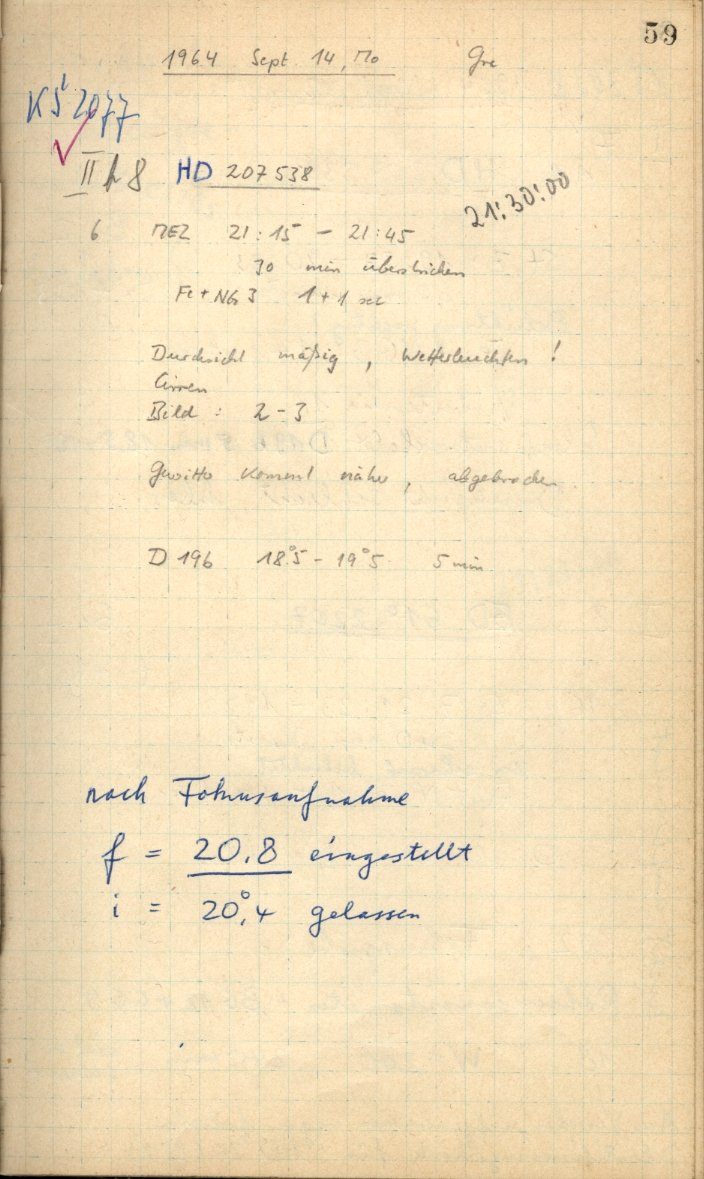 59
1964 Sept. 14, Mo Gre
KS 2077
II h 8 HD 207538
21:30:00
6 MEZ 21:15 - 21:45
30 min überstrichen
Fe + NG 3 1 + 1 sec
Durchsicht mäßig, Wetterleuchten!
Cirren
Bild: 2-3
Gewitter kommt näher, abgebrochen
D 196 18°5 - 19°5 5 min
nach Fokusaufnahme
f = 20.8 eingestellt
i = 20°,4 gelassen